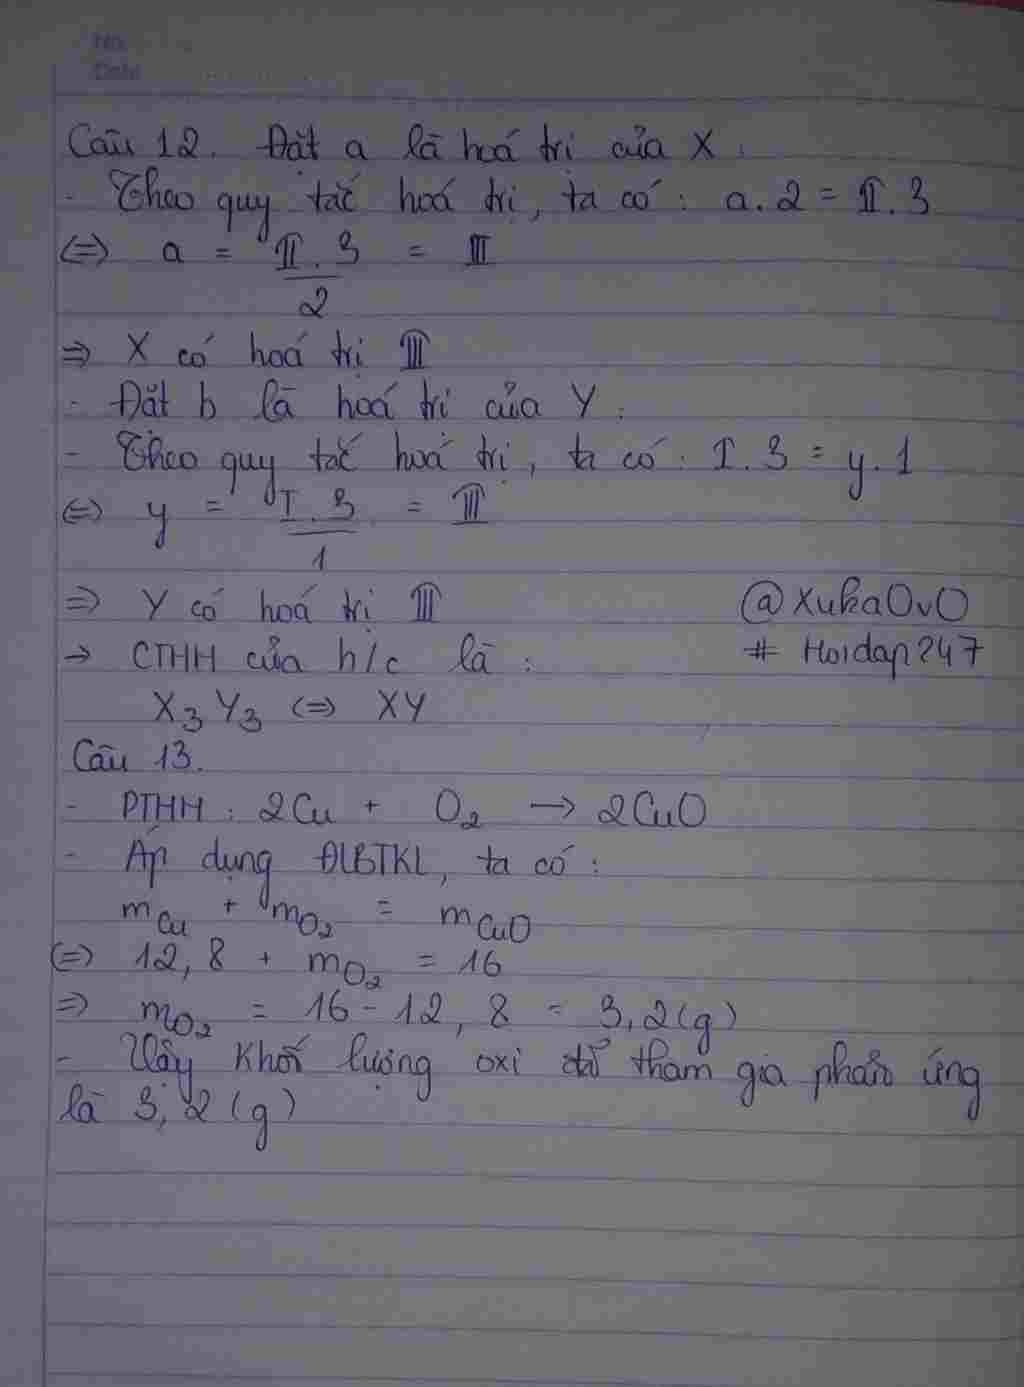 No.
Date
Câu 12. Đặt a là hoá trị của X.
- Theo quy tắc hoá trị, ta có: a.2 = II.3
<=> a = II.3/2 = III
=> X có hoá trị III
- Đặt b là hoá trị của Y:
- Theo quy tắc hoá trị, ta có: I.3 = y.1
<=> y = I.3/1 = III
=> Y có hoá trị III
@XukaOvO
→ CTHH của h/c là:
# Hoidap247
X₃Y₃ <=> XY
Câu 13.
- PTHH: 2Cu + O₂ → 2CuO
- Áp dụng ĐLBTKL, ta có:
m Cu + m O₂ = m CuO
<=> 12,8 + m O₂ = 16
=> m O₂ = 16 - 12,8 = 3,2(g)
- Vậy khối lượng oxi đã tham gia phản ứng
là 3,2(g)